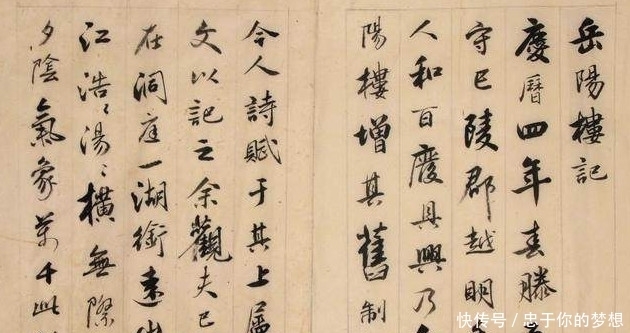 岳陽樓記
慶曆四年春滕
守巴陵郡越明
人和百廢具興乃
陽樓增其舊制
今人詩賦于其上屬
文以記之余觀夫巴
在洞庭一湖銜遠
江浩〻湯〻橫無際
夕陰氣象萬千此
快传号 / 忠于你的梦想